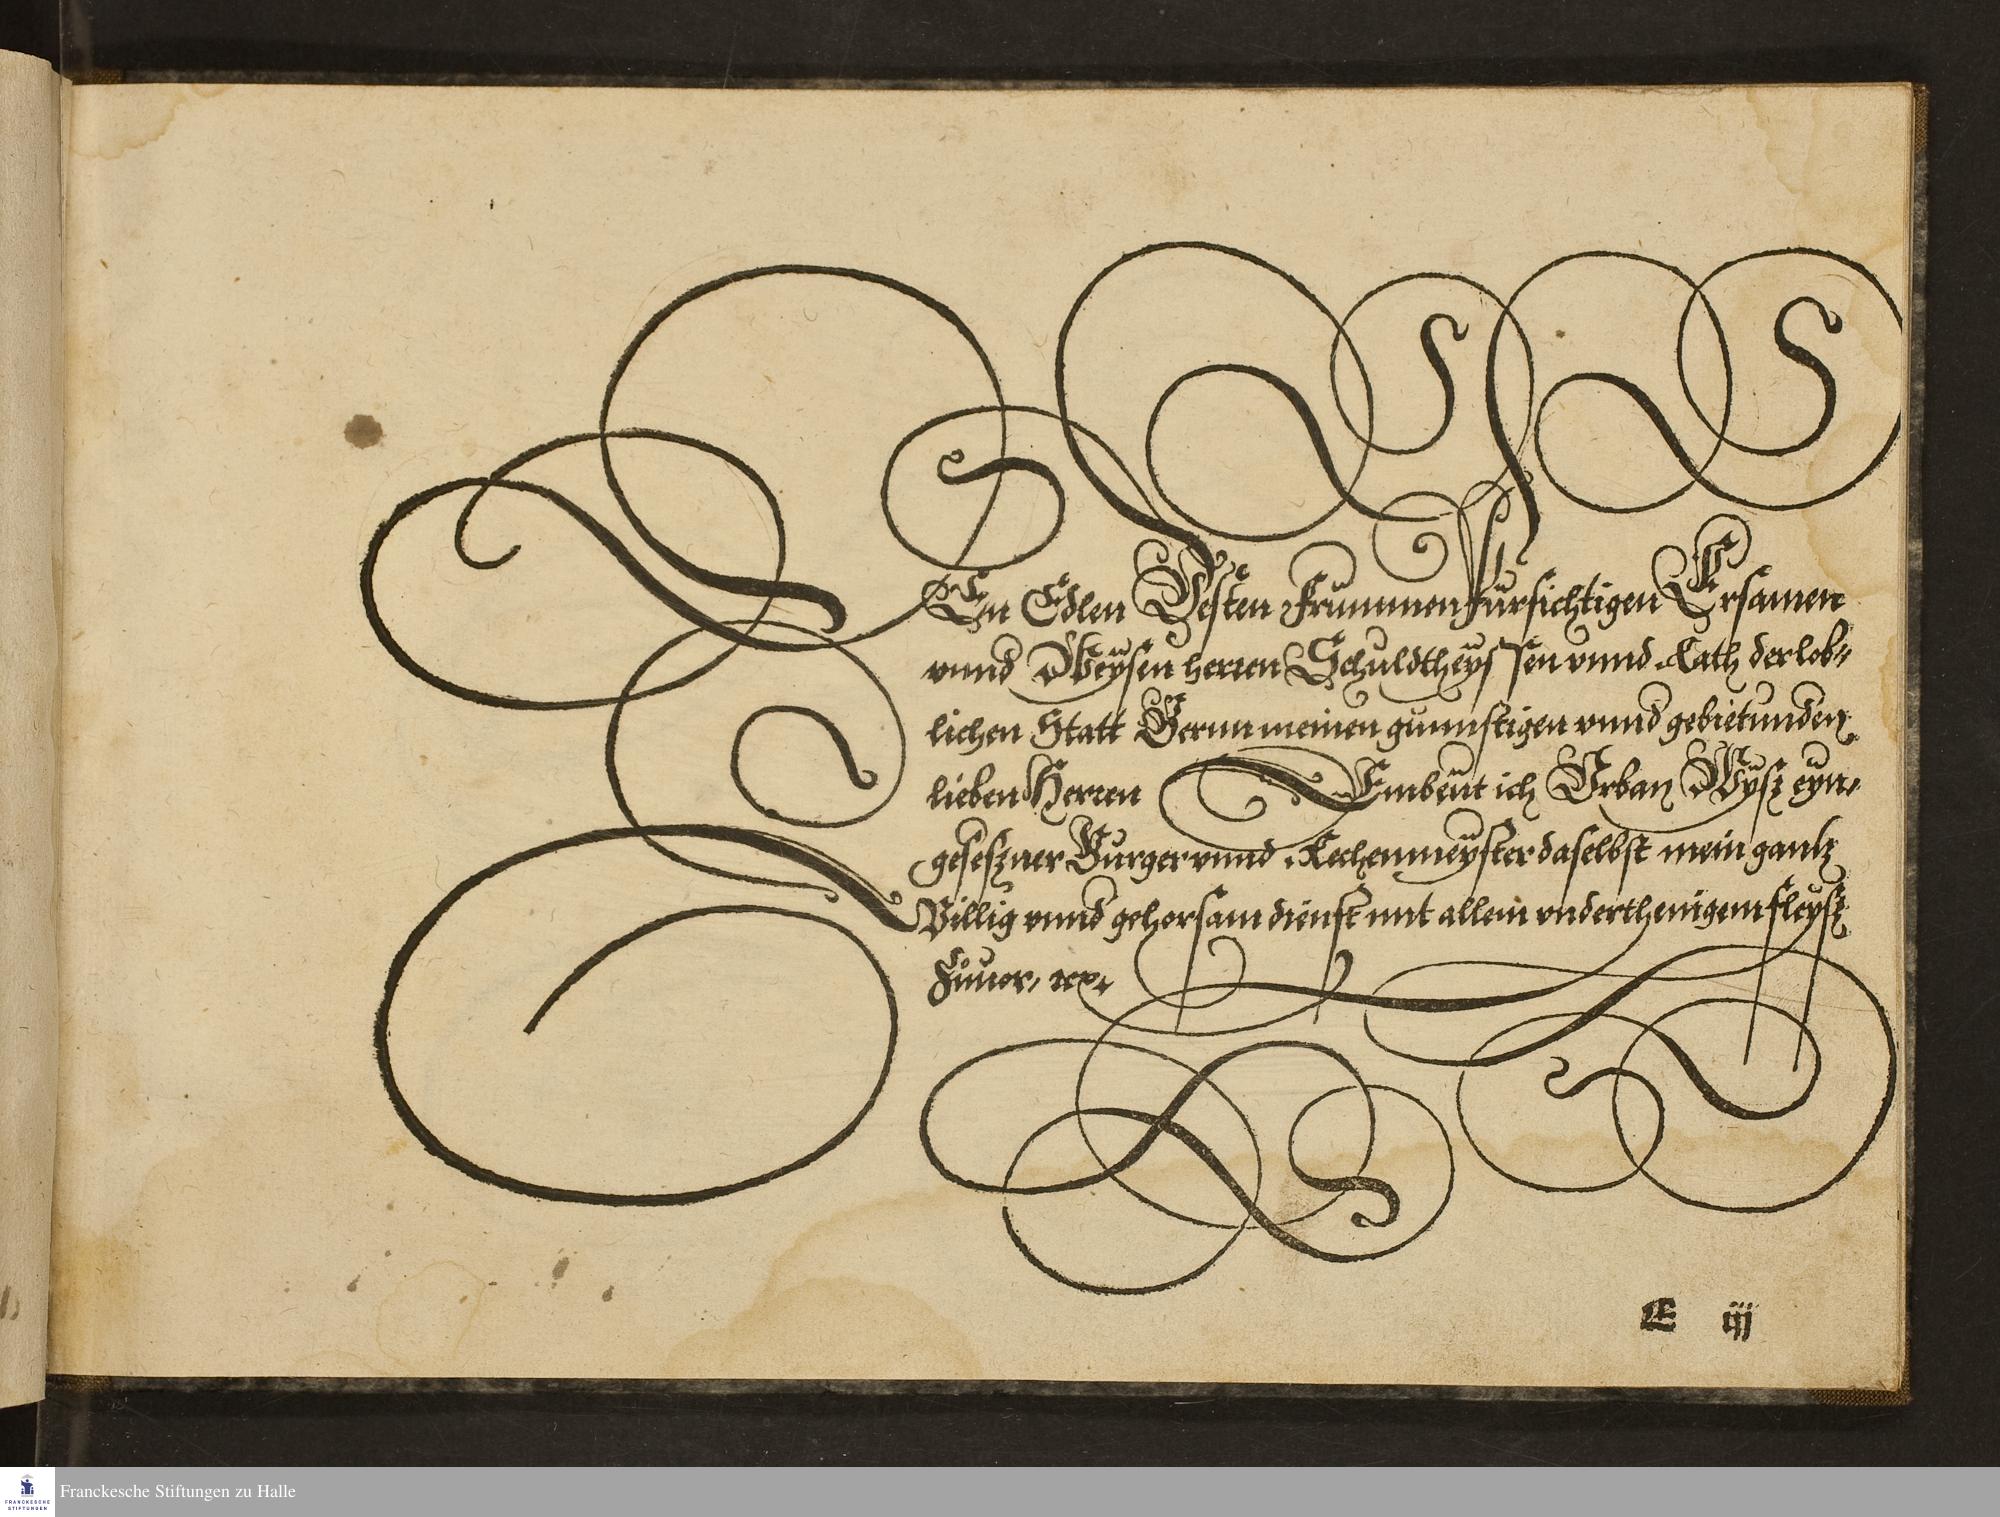 DEn Edlen Vesten Frummen fürsichtigen Ersamen
vnnd Weÿsen herren Schuldtheÿssen vnnd Rath der lob⸗
lichen Statt Bernn meinen gunnstigen vnnd gebietunden
lieben Herren Embeüt ich Vrban Wÿsz eÿn⸗
geseszner Burger vnnd Rechenmeÿster daselbst mein gantz
Villig vnnd gehorsam dienst mit allem vnderthenigem fleÿsz
Züuor,
E iij
FRANCKESCHE
STIFTUNGEN
Franckesche Stiftungen zu Halle